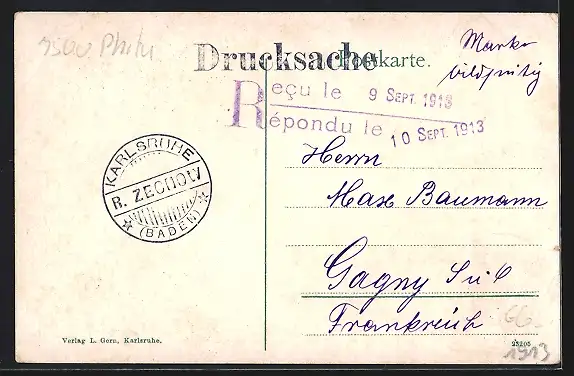 Drucksache
Postkarte.
Marke
bildseitig
Reçu le 9 SEPT. 1913
Répondu le 10 SEPT. 1913
KARLSRUHE
(BADEN)
Herrn
Max Baumann
Gagny
Frankreich
Verlag L. Gern, Karlsruhe.
1913